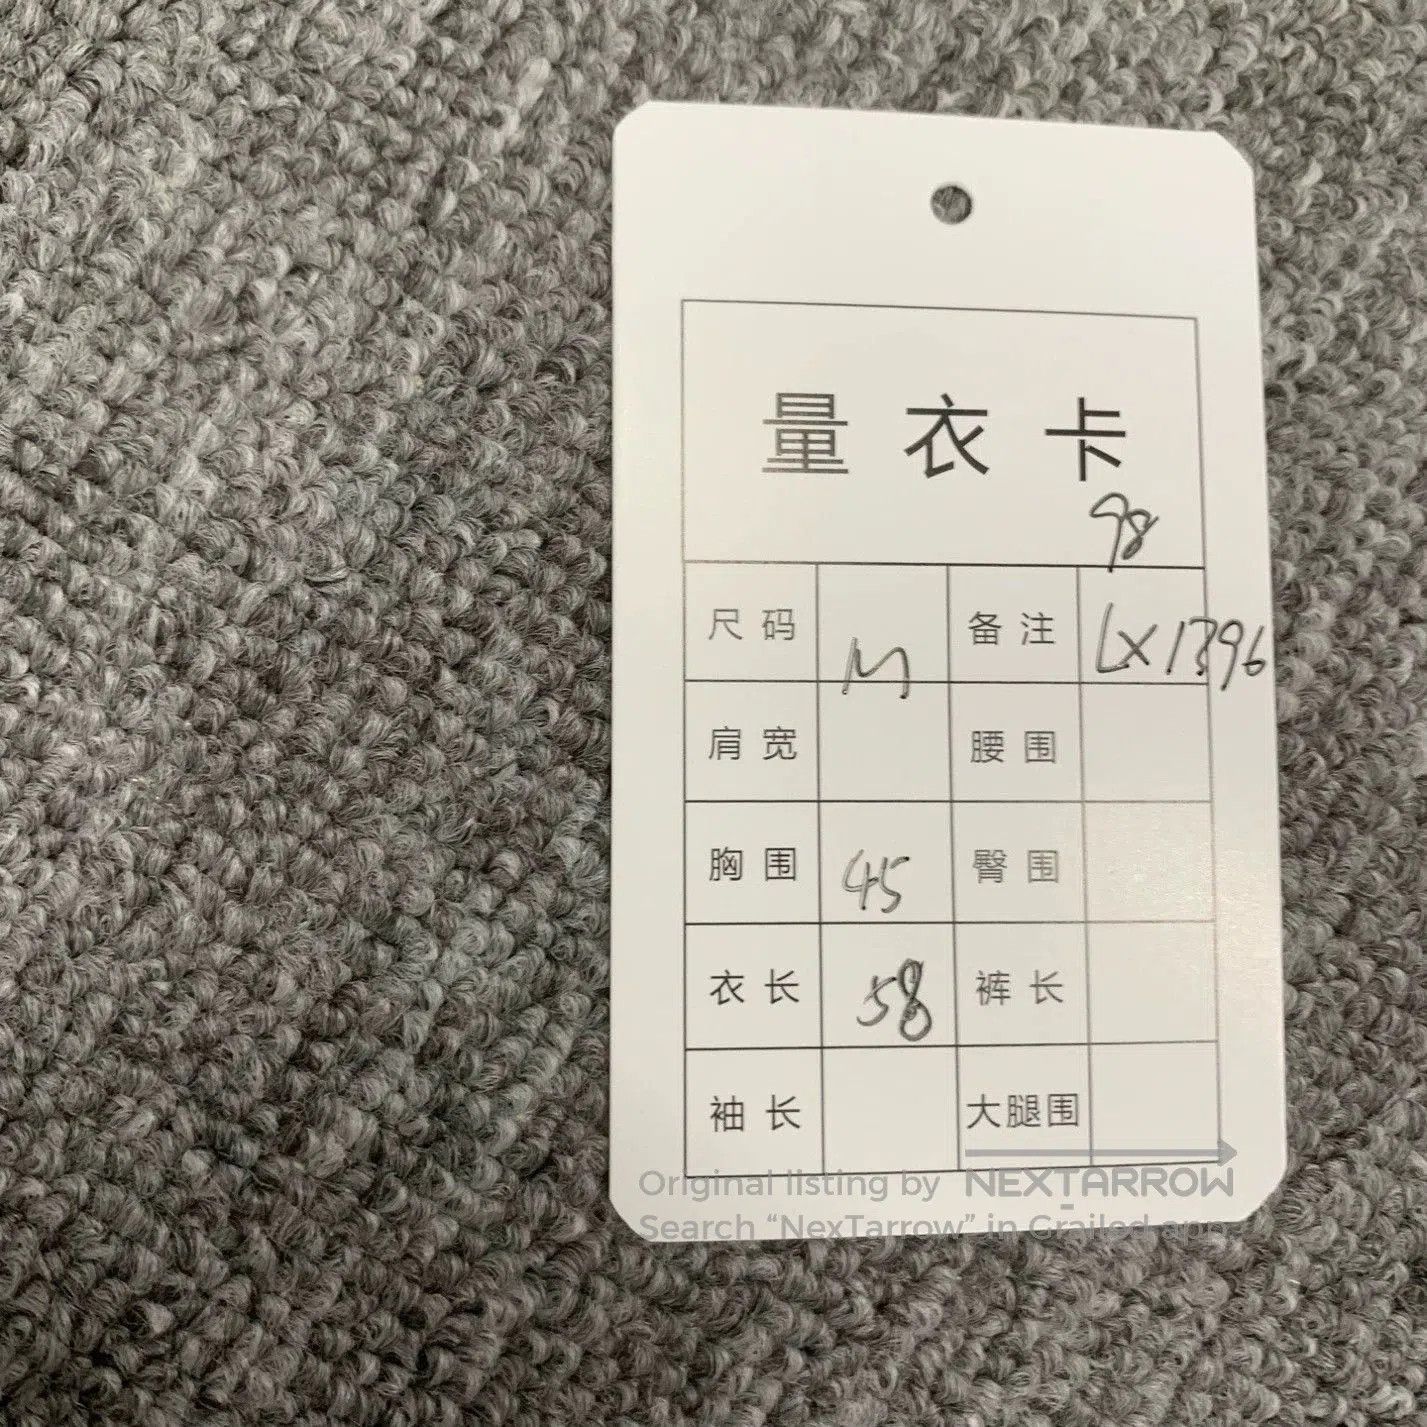 量衣卡
98
尺码 M 备注 LX1396
肩宽 腰围
胸围 45 臀围
衣长 58 裤长
袖长 大腿围
Original listing by NEXTARROW
Search “NexTarrow” in Grailed app.